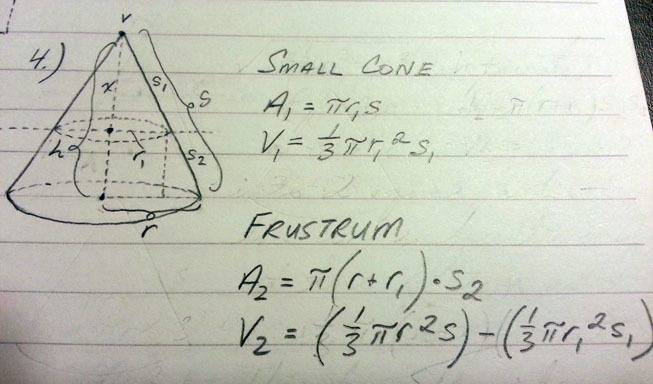 4.)
v
x
s₁
s
h
r₁
s₂
r
SMALL CONE
A₁ = πr₁s
V₁ = ⅓πr₁²s₁
FRUSTRUM
A₂ = π(r+r₁)·s₂
V₂ = (⅓πr²s) − (⅓πr₁²s₁)